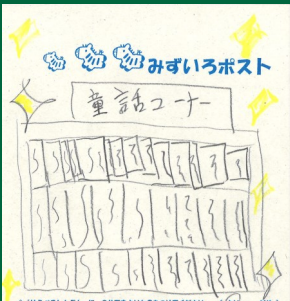 みずいろポスト
童話コーナー